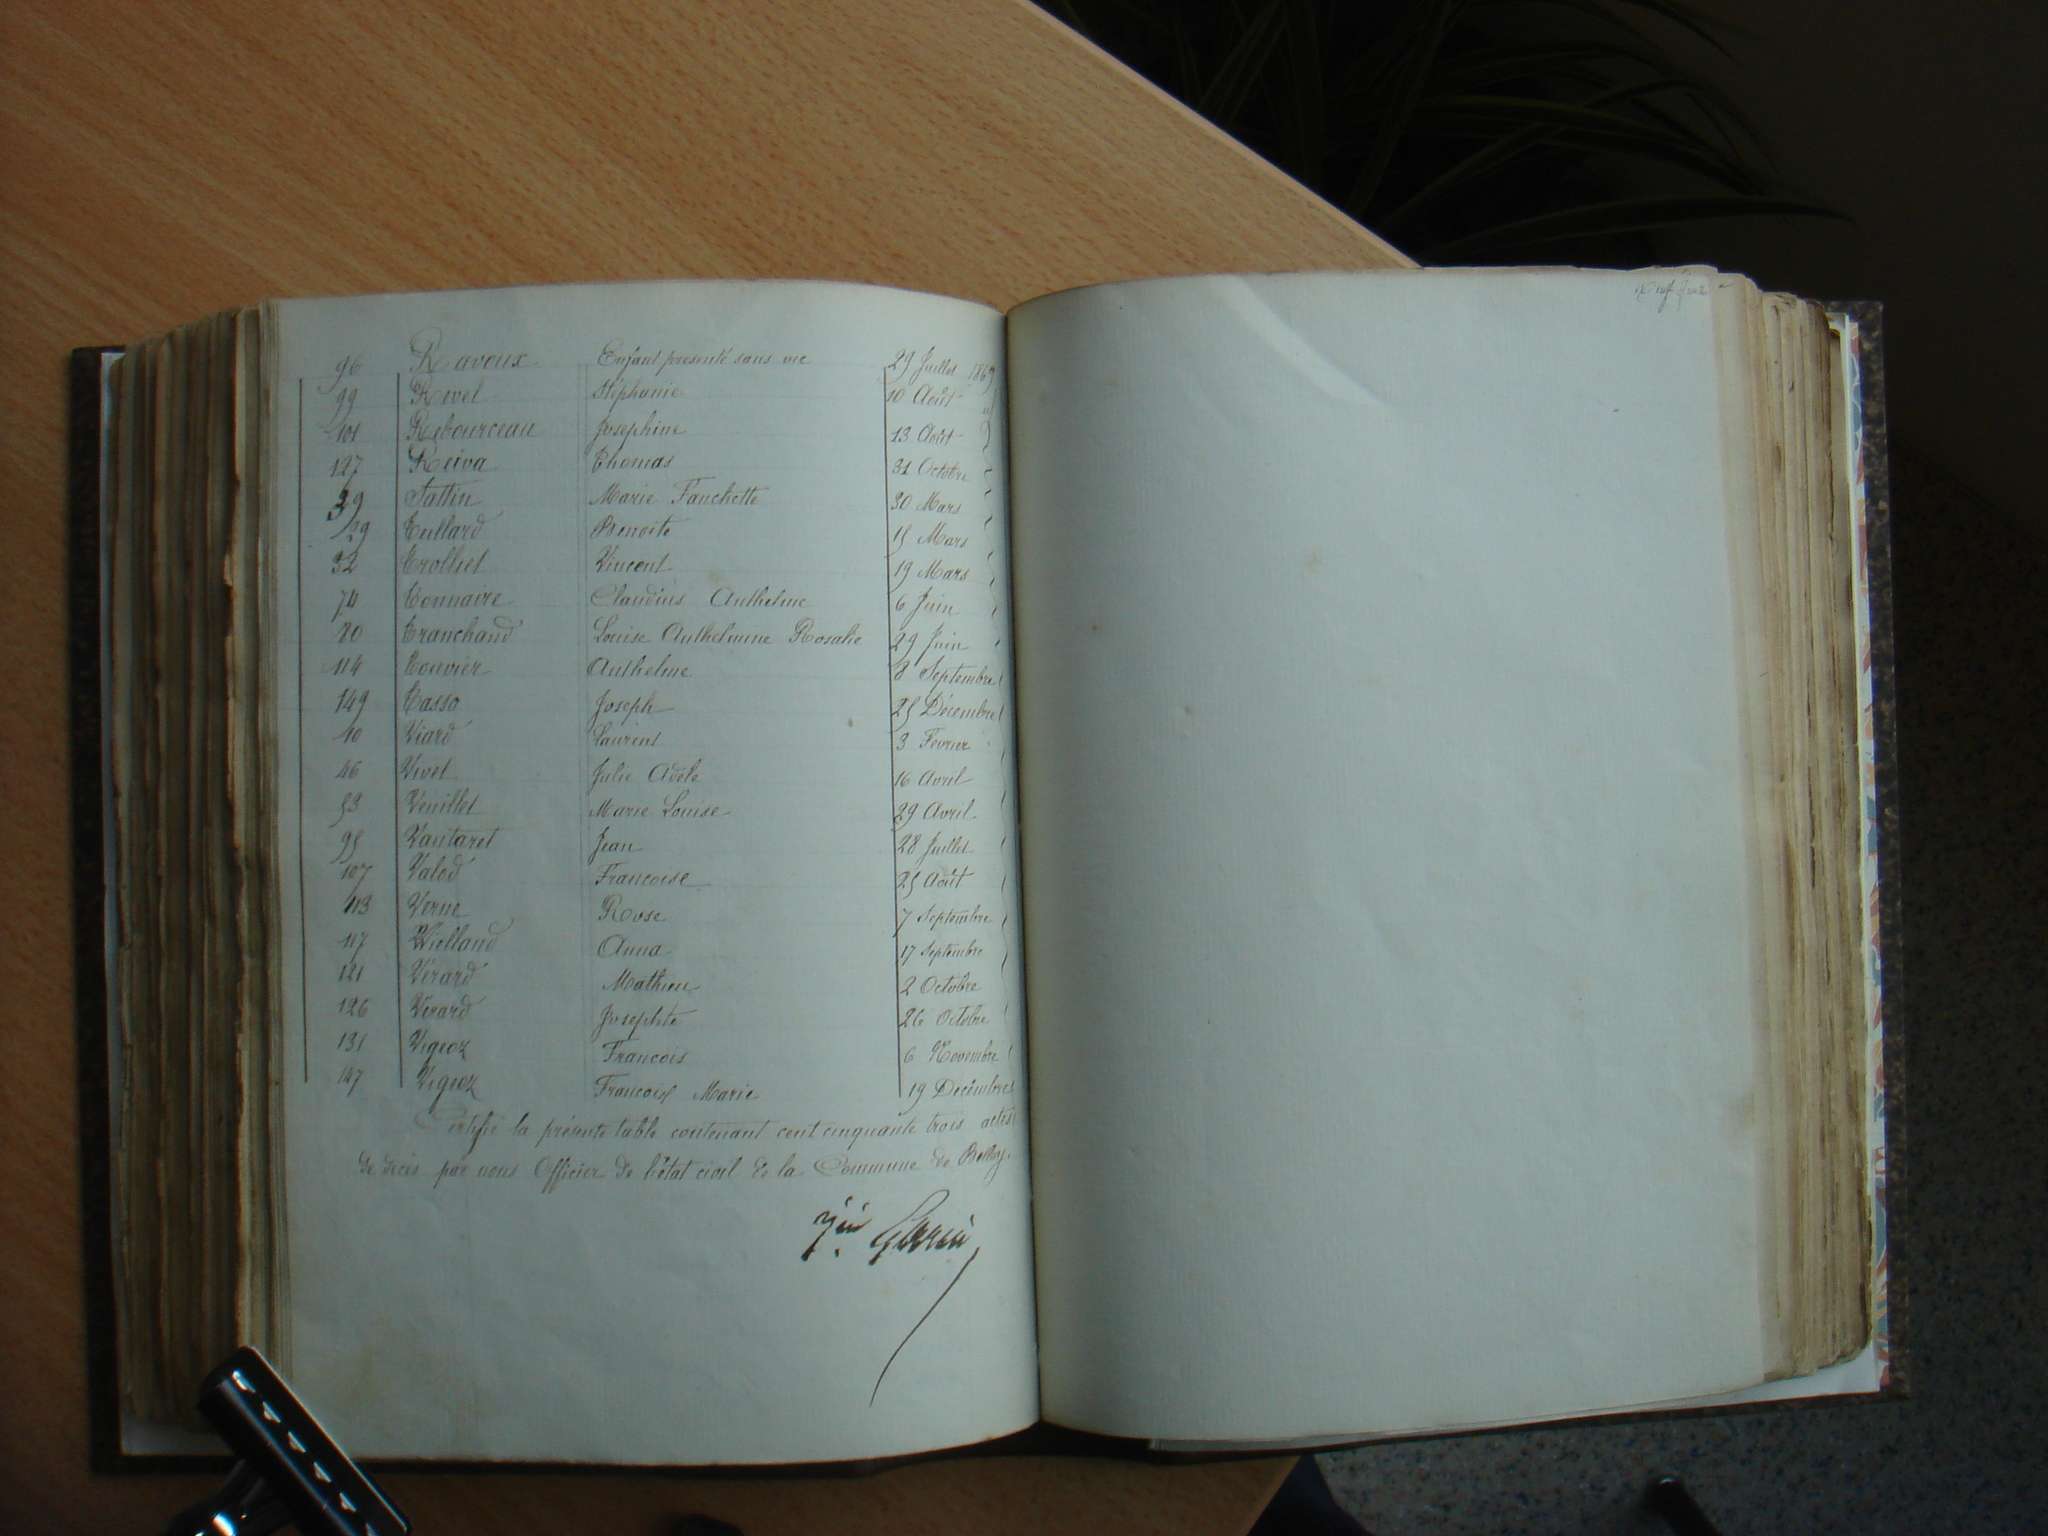 96 Ravoux Enfant presenté sans vie 29 Juillet 1869
99 Revel Stéphanie 10 Août
101 Rebourceau Josephine 13 Août
127 Reiva Thomas 31 Octobre
39 Tattin Marie Fanchette 30 Mars
29 Tullard Benoite 15 Mars
32 Trolliet Vincent 19 Mars
74 Tonnaire Claudius Anthelme 6 Juin
80 Tranchand Louise Anthelmine Rosalie 29 Juin
114 Touvier Anthelme 8 Septembre
149 Tasso Joseph 25 Décembre
10 Viard Laurent 3 Fevrier
46 Vivet Julie Adèle 16 Avril
53 Veuillet Marie Louise 29 Avril
95 Vautaret Jean 28 Juillet
107 Valod Francoise 25 Août
113 Verne Rose 7 Septembre
117 Vielland Anna 17 Septembre
121 Vérard Mathieu 2 Octobre
126 Verard Josephte 26 Octobre
131 Vigeoz Francois 6 Novembre
147 Vigeoz Francois Marie 19 Decembre
Certifié la présente table contenant cent cinquante trois actes
de décès par nous Officier de l'état civil de la Commune de Belley.